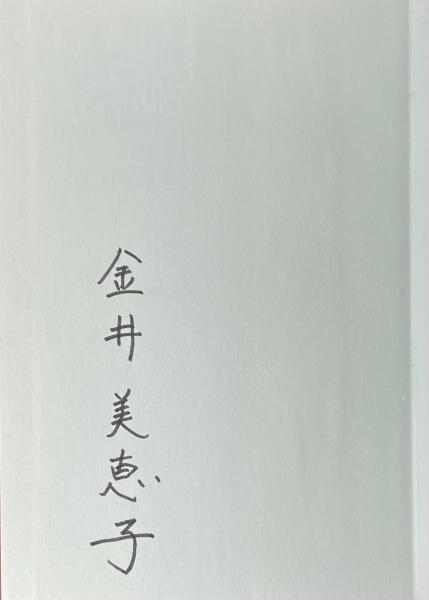 金井美恵子